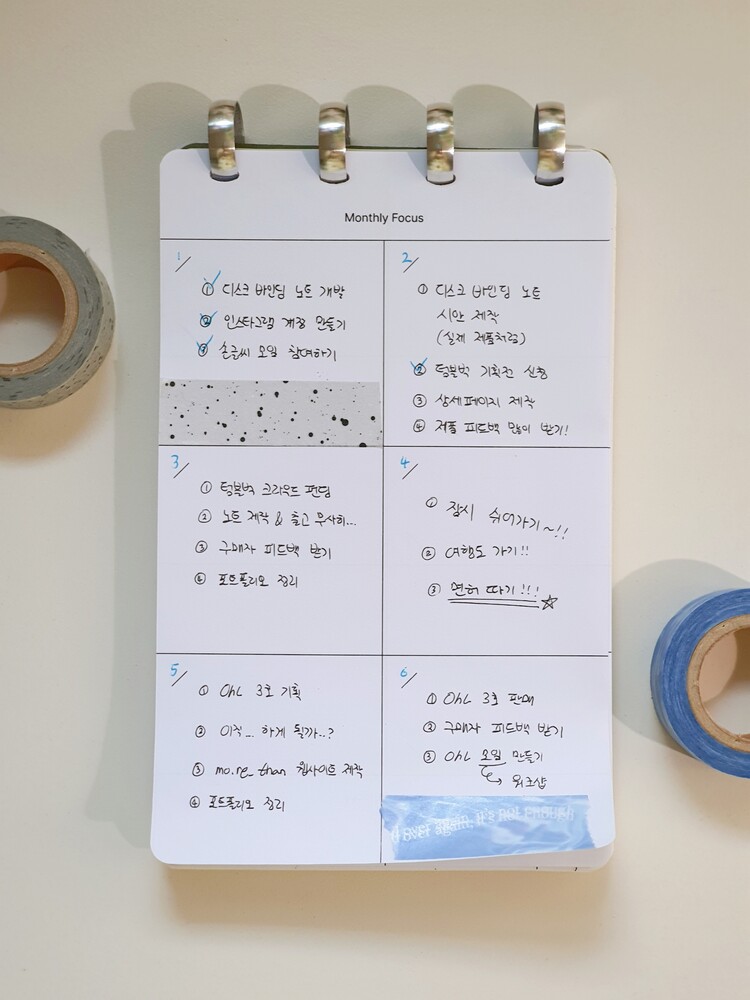 Monthly Focus
1/
① 디스크 바인딩 노트 개발
② 인스타그램 계정 만들기
③ 손글씨 모임 참여하기
2/
① 디스크 바인딩 노트
시안 제작
(실제 제품처럼)
② 텀블벅 기획전 신청
③ 상세페이지 제작
④ 제품 피드백 많이 받기!
3/
① 텀블벅 크라우드 펀딩
② 노트 제작 & 출고 무사히...
③ 구매자 피드백 받기
④ 포트폴리오 정리
4/
① 잠시 쉬어가기~!!
② 여행도 가기!!
③ 면허 따기!!!
5/
① OhL 3호 기획
② 이직... 하게 될까..?
③ mo.re_than 웹사이트 제작
④ 포트폴리오 정리
6/
① OhL 3호 판매
② 구매자 피드백 받기
③ OhL 모임 만들기
→ 워크샵
over again, it's not enough